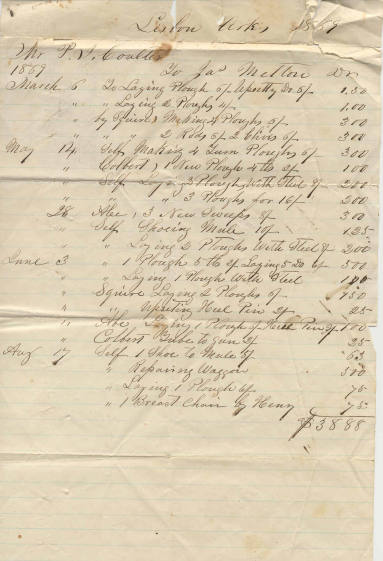 Lisbon Arks 1859
Mr P. J. Coulter
1859 To Jas Melton Dr
March 6 To Laying Plough 5/ 5/ 1.50
" " Laying 2 Ploughs 4/ 1.00
" by Squire Making 4 Ploughs 6/ 300
" " " 2 Rods 6/ 2 Clivis 6/ 300
May 14 Self Making 4 Turn Ploughs 6/ 300
" Colbert, 1 New Plough 4 lbs 2/ 100
" Self Laying 2 Ploughs With Steel 8/ 200
" " " 3 Ploughs for 16/ 200
" 28 Abe, 3 New Sweeps 8/ 300
" Self Shoeing Mule 10/ 125
" " Laying 2 Ploughs With Steel 8/ 200
June 3 " 1 Plough 5 lb 2/ Laying 5 Do 6/ 500
" " Laying 1 Plough With Steel 100
" Squire Laying 2 Ploughs 6/ 150
" " Heel Pin 2/ 25
" Abe Laying 1 Plough 6/ Heel Pin 2/ 100
" Colbert to Gun 2/ 25
Aug 17 Self 1 Shoe to Mule 5/ 63
" Repairing Waggon 300
" Laying 1 Plough 6/ 75
" 1 Breast Chain by Henry 75
$38 88